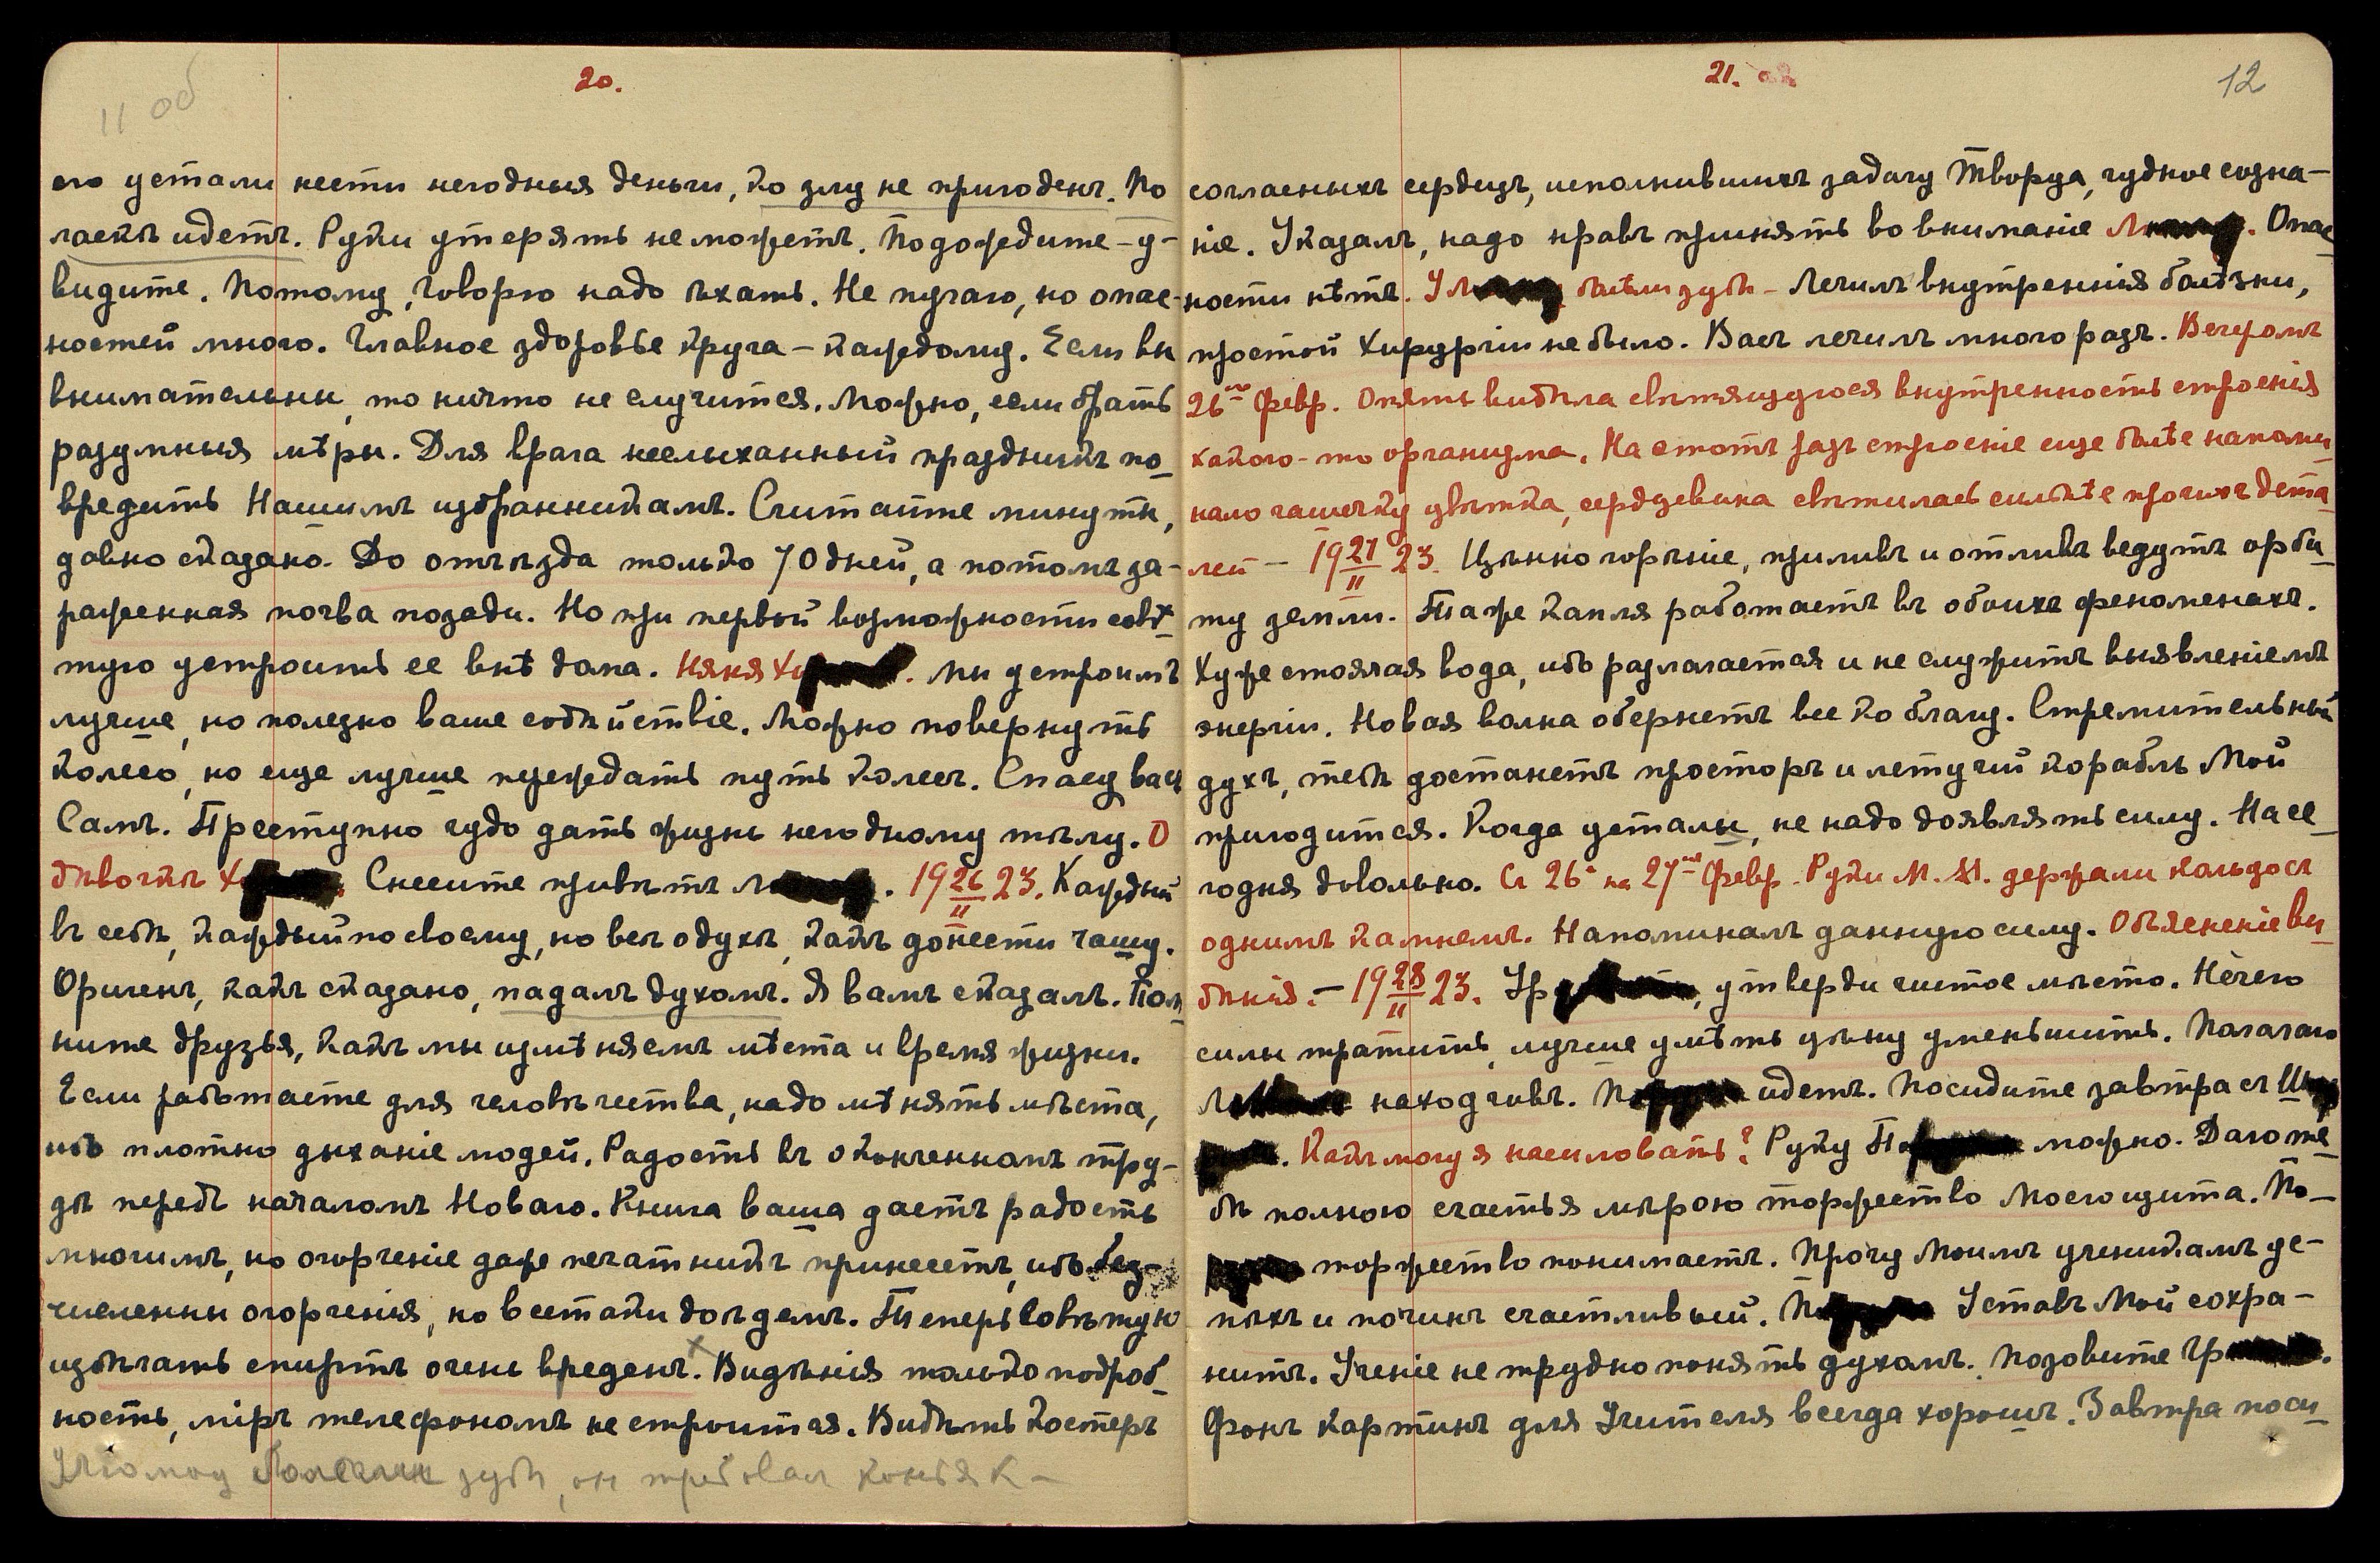 11 об
20.
его устали нести негодныя деньги, ко злу не пригоденъ. По
лаекъ идетъ. Руки утерять не можетъ. Подождите – у-
видите. Потому, говорю надо ѣхать. Не пугаю, но опас-
ностей много. Главное здоровье круга – каждому. Если вы
внимательны, то ничто не случится. Можно, если брать
разумныя мѣры. Для врага неслыханный праздникъ по-
вредить Нашимъ избранникамъ. Считайте минуты,
давно сказано. До отъѣзда только 70 дней, а потомъ за-
раженная почва позади. Но при первой возможности совѣ-
тую устроить ее внѣ дома. Няня Х. Мы устроимъ
лучше, но полезно ваше содѣйствіе. Можно повернуть
колесо, но еще лучше переждать путь колеса. Спасу васъ
Самъ. Преступно чудо дать жизнь негодному тѣлу. О
дѣвочкѣ Х. Снесите привѣтъ Л. 19 26/II 23. Каждый
въ себѣ, каждый по своему, но все о духѣ, какъ донести чашу.
Оригенъ, какъ сказано, падалъ духомъ. Я вамъ сказалъ. Пом-
ните друзья, какъ мы измѣняемъ мѣста и время жизни.
Если работаете для человѣчества, надо мѣнять мѣста,
ибо плотно дыханіе людей. Радость въ оконченномъ тру-
дѣ передъ началомъ Новаго. Книга ваша даетъ радость
многимъ, но огорченіе даже печатникъ принесетъ, ибо без-
численны огорченія, но всетаки дойдемъ. Теперь совѣтую
избѣгать спиртъ очень вреденъ.× Видѣнія только подроб-
ность, міръ телефономъ не строится. Видѣть костеръ
болѣли зубы, он требовал коньяк –
21.
12
согласныхъ сердецъ, исполнившихъ задачу Творца, чудное созна-
ніе. Указалъ, надо нравъ принять во вниманіе Л. Опас-
ности нѣтъ. У Л болѣли зубы – Лечилъ внутреннія болѣзни,
простой хирургіи не было. Васъ лечилъ много разъ. Вечеромъ
26го Февр. Опять видѣла свѣтящуюся внутренность строенія
какого-то организма. На этотъ разъ строеніе еще болѣе напоми-
нало чашечку цвѣтка, сердцевина свѣтилась сильнѣе прочихъ дета-
лей – 19 27/II 23. Цѣнно горѣніе, приливъ и отливъ ведутъ орби-
ту земли. Таже капля работаетъ въ обоихъ феноменахъ.
Хуже стоячая вода, ибо разлагается и не служитъ выявленіемъ
энергіи. Новая волна обернетъ все ко благу. Стремительный
духъ, тебѣ достанетъ просторъ и летучій корабль Мой
пригодится. Когда устали, не надо доявлять силу. На се-
годня довольно. Съ 26го на 27ое Февр. Руки М. М. держали кольцо съ
однимъ камнемъ. Напоминалъ данную силу. Объясненіе ви-
дѣнія. – 19 28/II 23. Ур, утверди чистое мѣсто. Нечего
силы тратить, лучше умѣть цѣну уменьшить. Полагаю
Л находчивъ. П идетъ. Посидите завтра съ Ш
. Какъ могу я насиловать? Руку П можно. Даю те-
бѣ полною счастья мѣрою торжество Моего щита. По-
торжество понимаетъ. Прочу Моимъ ученикамъ ус-
пѣхъ и починъ счастливый. П Уставъ Мой сохра-
нитъ. Ученіе не трудно понять духомъ. Позовите Гр.
Фонъ картинъ для Учителя всегда хорошъ. Завтра поси-